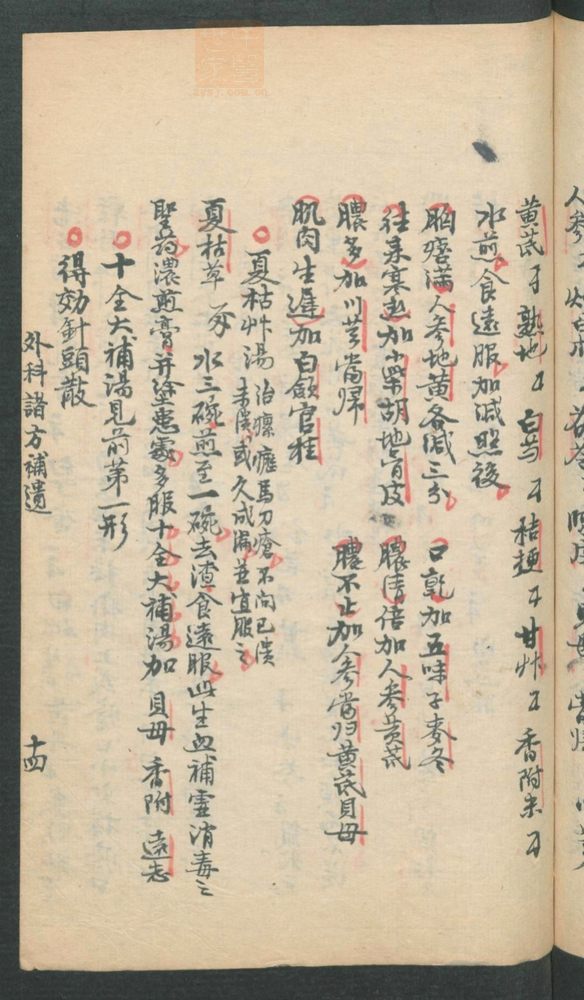 黄芪 熟地 白芍 桔梗 甘艸 香附米
水煎食遠服加減照後
胸痞滿人参地黄各减三分 口乾加五味子麦冬
往来寒热加柴胡地骨皮 膿清倍加人参黄芪
膿多加川芎當归 膿不止加人参當归黄芪貝母
肌肉生遲加白蘞官桂
夏枯艸湯 治瘰癧馬刀瘡不问已潰
未潰或久成漏並宜服之
夏枯草 水三碗煎至一碗去渣食遠服此生血補虚消毒之
聖药濃煎膏并塗患處多服十全大補湯加 貝母 香附 遠志
十全大補湯見前第一形
得効針頭散
外科諸方補遺
十四